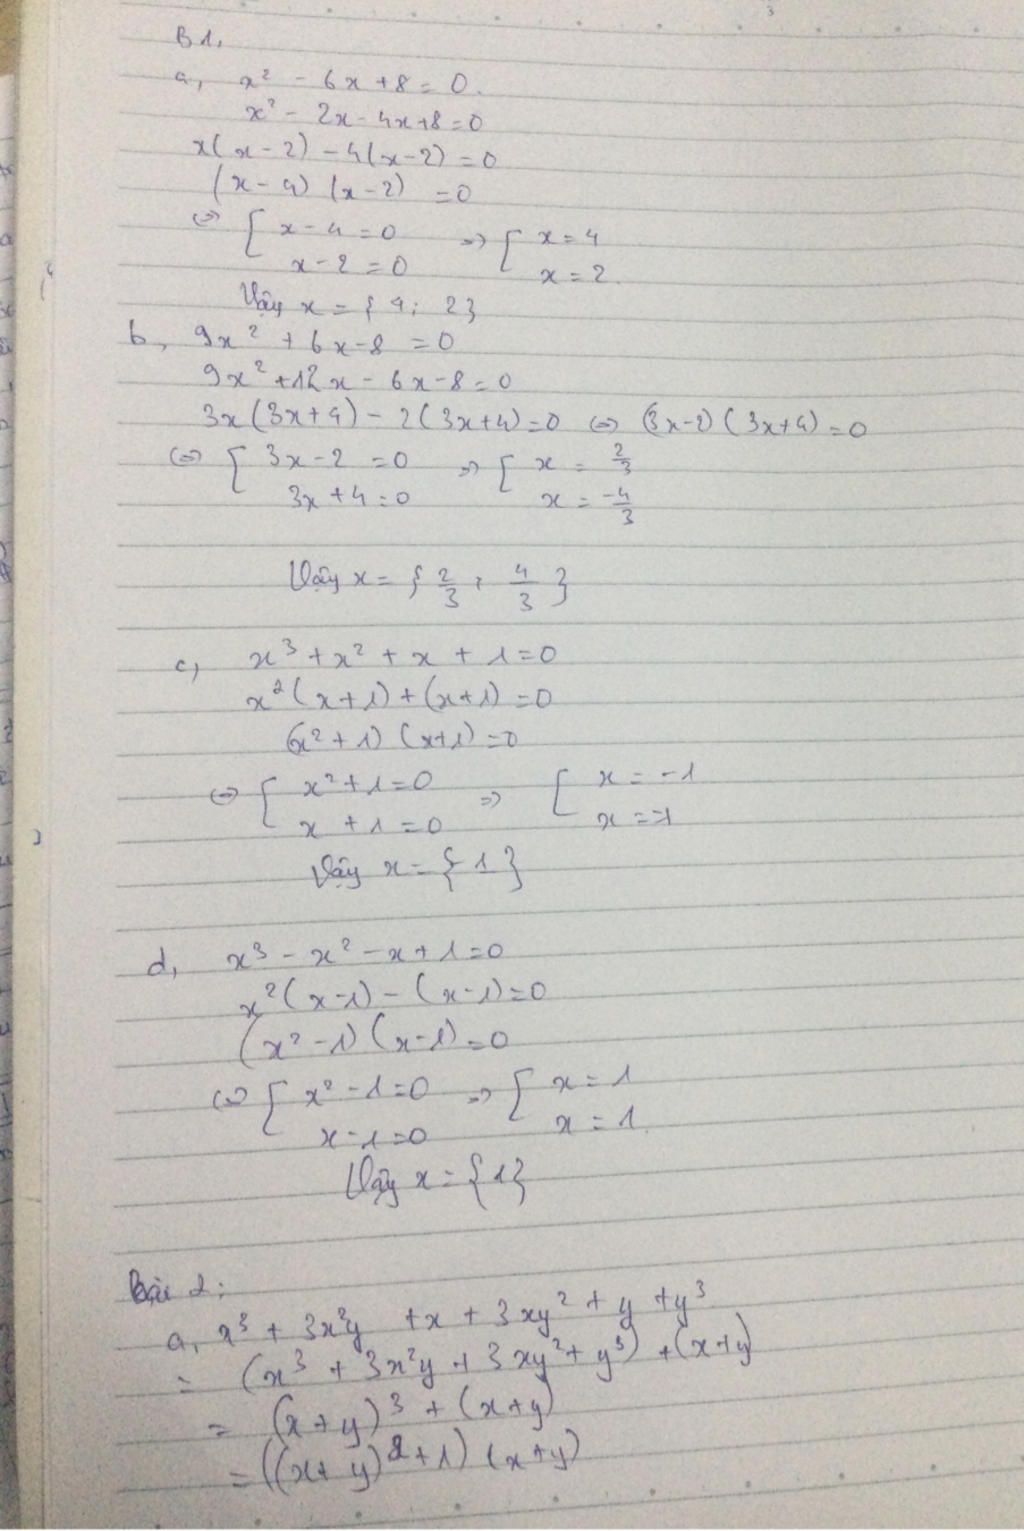 B1,
a, x² - 6x + 8 = 0.
x² - 2x - 4x + 8 = 0
x(x - 2) - 4(x - 2) = 0
(x - 4) (x - 2) = 0
⇔ [ x - 4 = 0 ⇒ [ x = 4
x - 2 = 0 x = 2.
Vậy x = { 4; 2 }
b, 9x² + 6x - 8 = 0
9x² + 12x - 6x - 8 = 0
3x(3x + 4) - 2(3x + 4) = 0 ⇔ (3x - 2)(3x + 4) = 0
⇔ [ 3x - 2 = 0 ⇒ [ x = 2/3
3x + 4 = 0 x = -4/3
Vậy x = { 2/3 ; 4/3 }
c, x³ + x² + x + 1 = 0
x²(x + 1) + (x + 1) = 0
(x² + 1) (x + 1) = 0
⇔ [ x² + 1 = 0 ⇒ [ x = -1
x + 1 = 0 x = -1
Vậy x = { 1 }
d, x³ - x² - x + 1 = 0
x²(x - 1) - (x - 1) = 0
(x² - 1) (x - 1) = 0
⇔ [ x² - 1 = 0 ⇒ [ x = 1
x - 1 = 0 x = 1.
Vậy x = { 1 }
Bài 2:
a, x³ + 3x²y + x + 3xy² + y + y³
= (x³ + 3x²y + 3xy² + y³) + (x + y)
= (x + y)³ + (x + y)
= ((x + y)² + 1) (x + y)